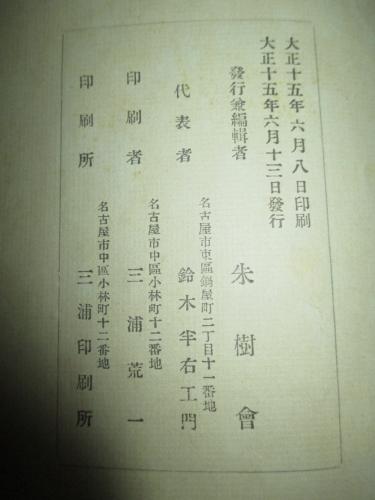 大正十五年六月八日印刷
大正十五年六月十三日發行
發行兼編輯者 朱樹會
名古屋市東區鍋屋町二丁目十一番地
代表者 鈴木半右工門
名古屋市中區小林町十二番地
印刷者 三浦荒一
名古屋市中區小林町十二番地
印刷所 三浦印刷所